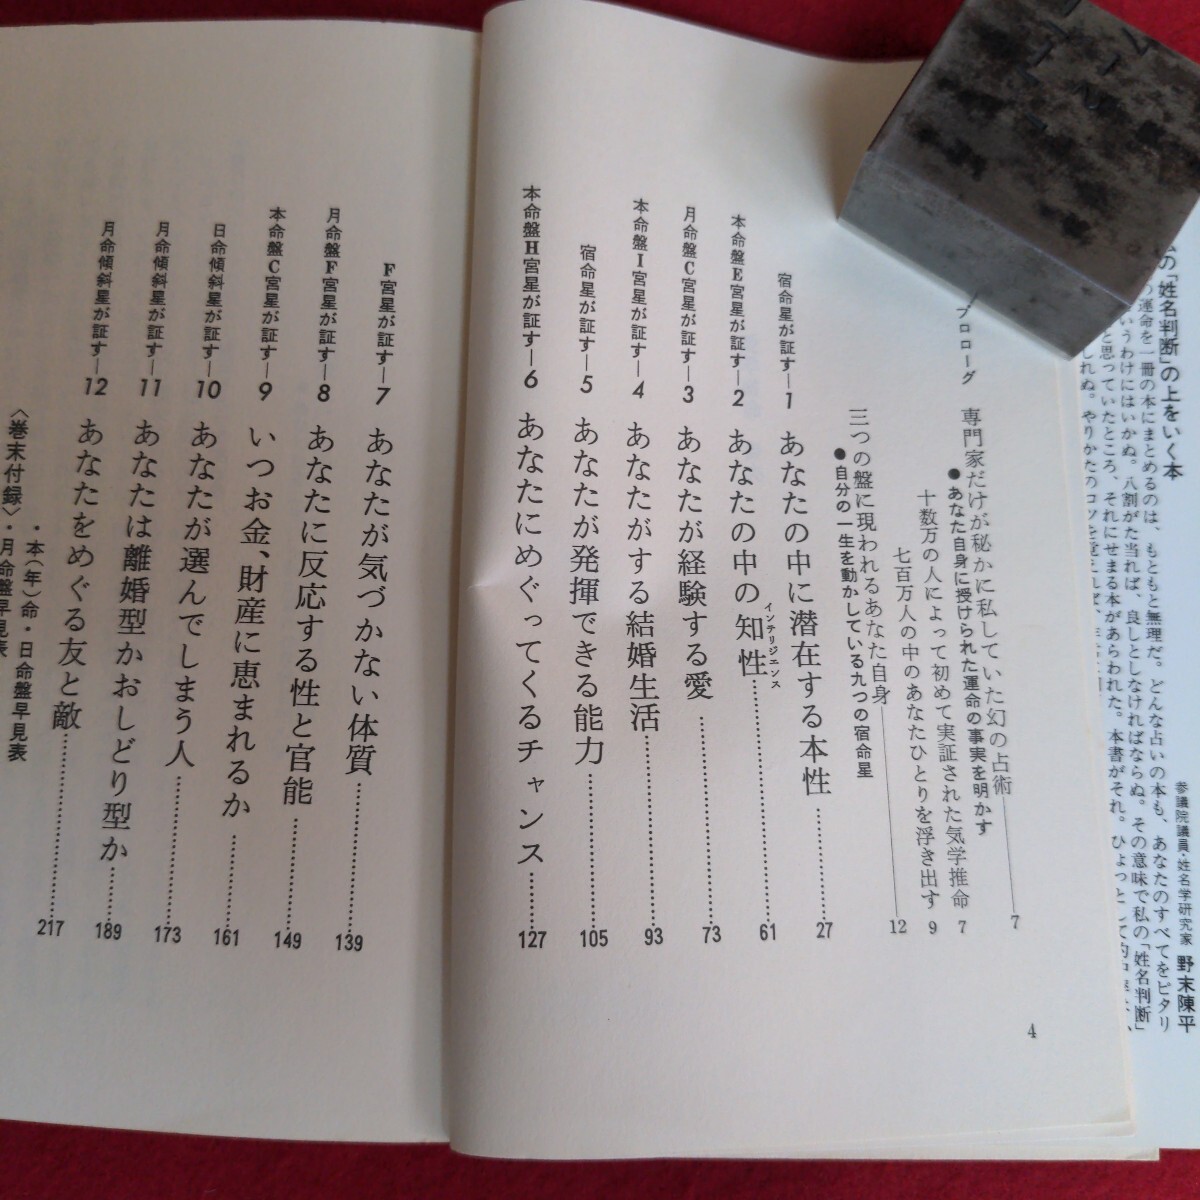 の「姓名判断」の上をいく本
の運命を一冊の本にまとめるのは、もともと無理だ。どんな占いの本も、あなたのすべてをピタリ
いうわけにはいかぬ。八割がた当れば、良しとしなければならぬ。その意味で私の「姓名判断」
と思っていたところ、それにせまる本があらわれた。本書がそれ。ひょっとして
しれぬ。やりかたのコツを覚えれば、
参議院議員・姓名学研究家 野末陳平
プロローグ 専門家だけが秘かに私していた幻の占術 7
●あなた自身に授けられた運命の事実を明かす
十数万の人によって初めて実証された気学推命 7
七百万人の中のあなたひとりを浮き出す 9
三つの盤に現われるあなた自身 12
●自分の一生を動かしている九つの宿命星
宿命星が証す―1 あなたの中に潜在する本性 27
本命盤E宮星が証す―2 あなたの中の知性 61
インテリジェンス
月命盤C宮星が証す―3 あなたが経験する愛 73
本命盤I宮星が証す―4 あなたがする結婚生活 93
宿命星が証す―5 あなたが発揮できる能力 105
本命盤H宮星が証す―6 あなたにめぐってくるチャンス 127
4
F宮星が証す―7 あなたが気づかない体質 139
月命盤F宮星が証す―8 あなたに反応する性と官能 149
本命盤C宮星が証す―9 いつお金、財産に恵まれるか 161
日命傾斜星が証す―10 あなたが選んでしまう人 173
月命傾斜星が証す―11 あなたは離婚型かおしどり型か 189
月命傾斜星が証す―12 あなたをめぐる友と敵 217
〈巻末付録〉・本(年)命・日命盤早見表
・月命盤早見表